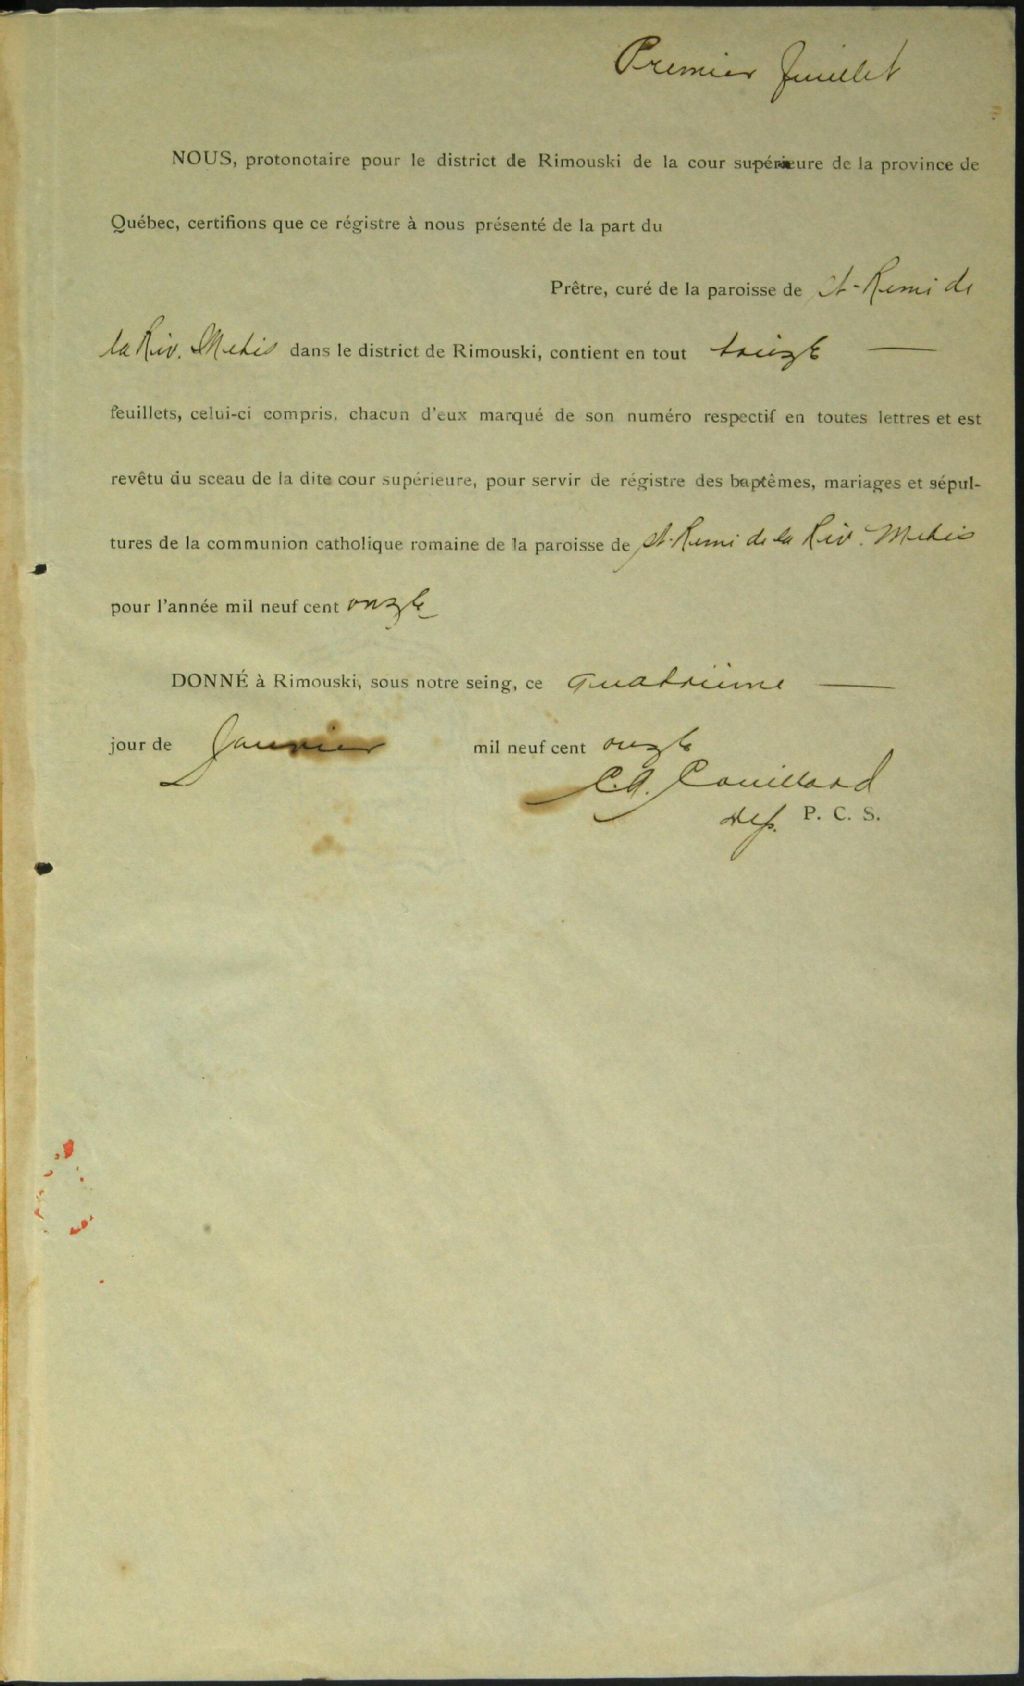 Premier feuillet
NOUS, protonotaire pour le district de Rimouski de la cour supérieure de la province de
Québec, certifions que ce régistre à nous présenté de la part du
Prêtre, curé de la paroisse de St-Remi de
la Riv. Metis dans le district de Rimouski, contient en tout treize
feuillets, celui-ci compris, chacun d'eux marqué de son numéro respectif en toutes lettres et est
revêtu du sceau de la dite cour supérieure, pour servir de régistre des baptêmes, mariages et sépul-
tures de la communion catholique romaine de la paroisse de St-Remi de la Riv. Metis
pour l'année mil neuf cent onze
DONNÉ à Rimouski, sous notre seing, ce quatrième
jour de Janvier mil neuf cent onze
C.A. Couillard
Dep. P. C. S.